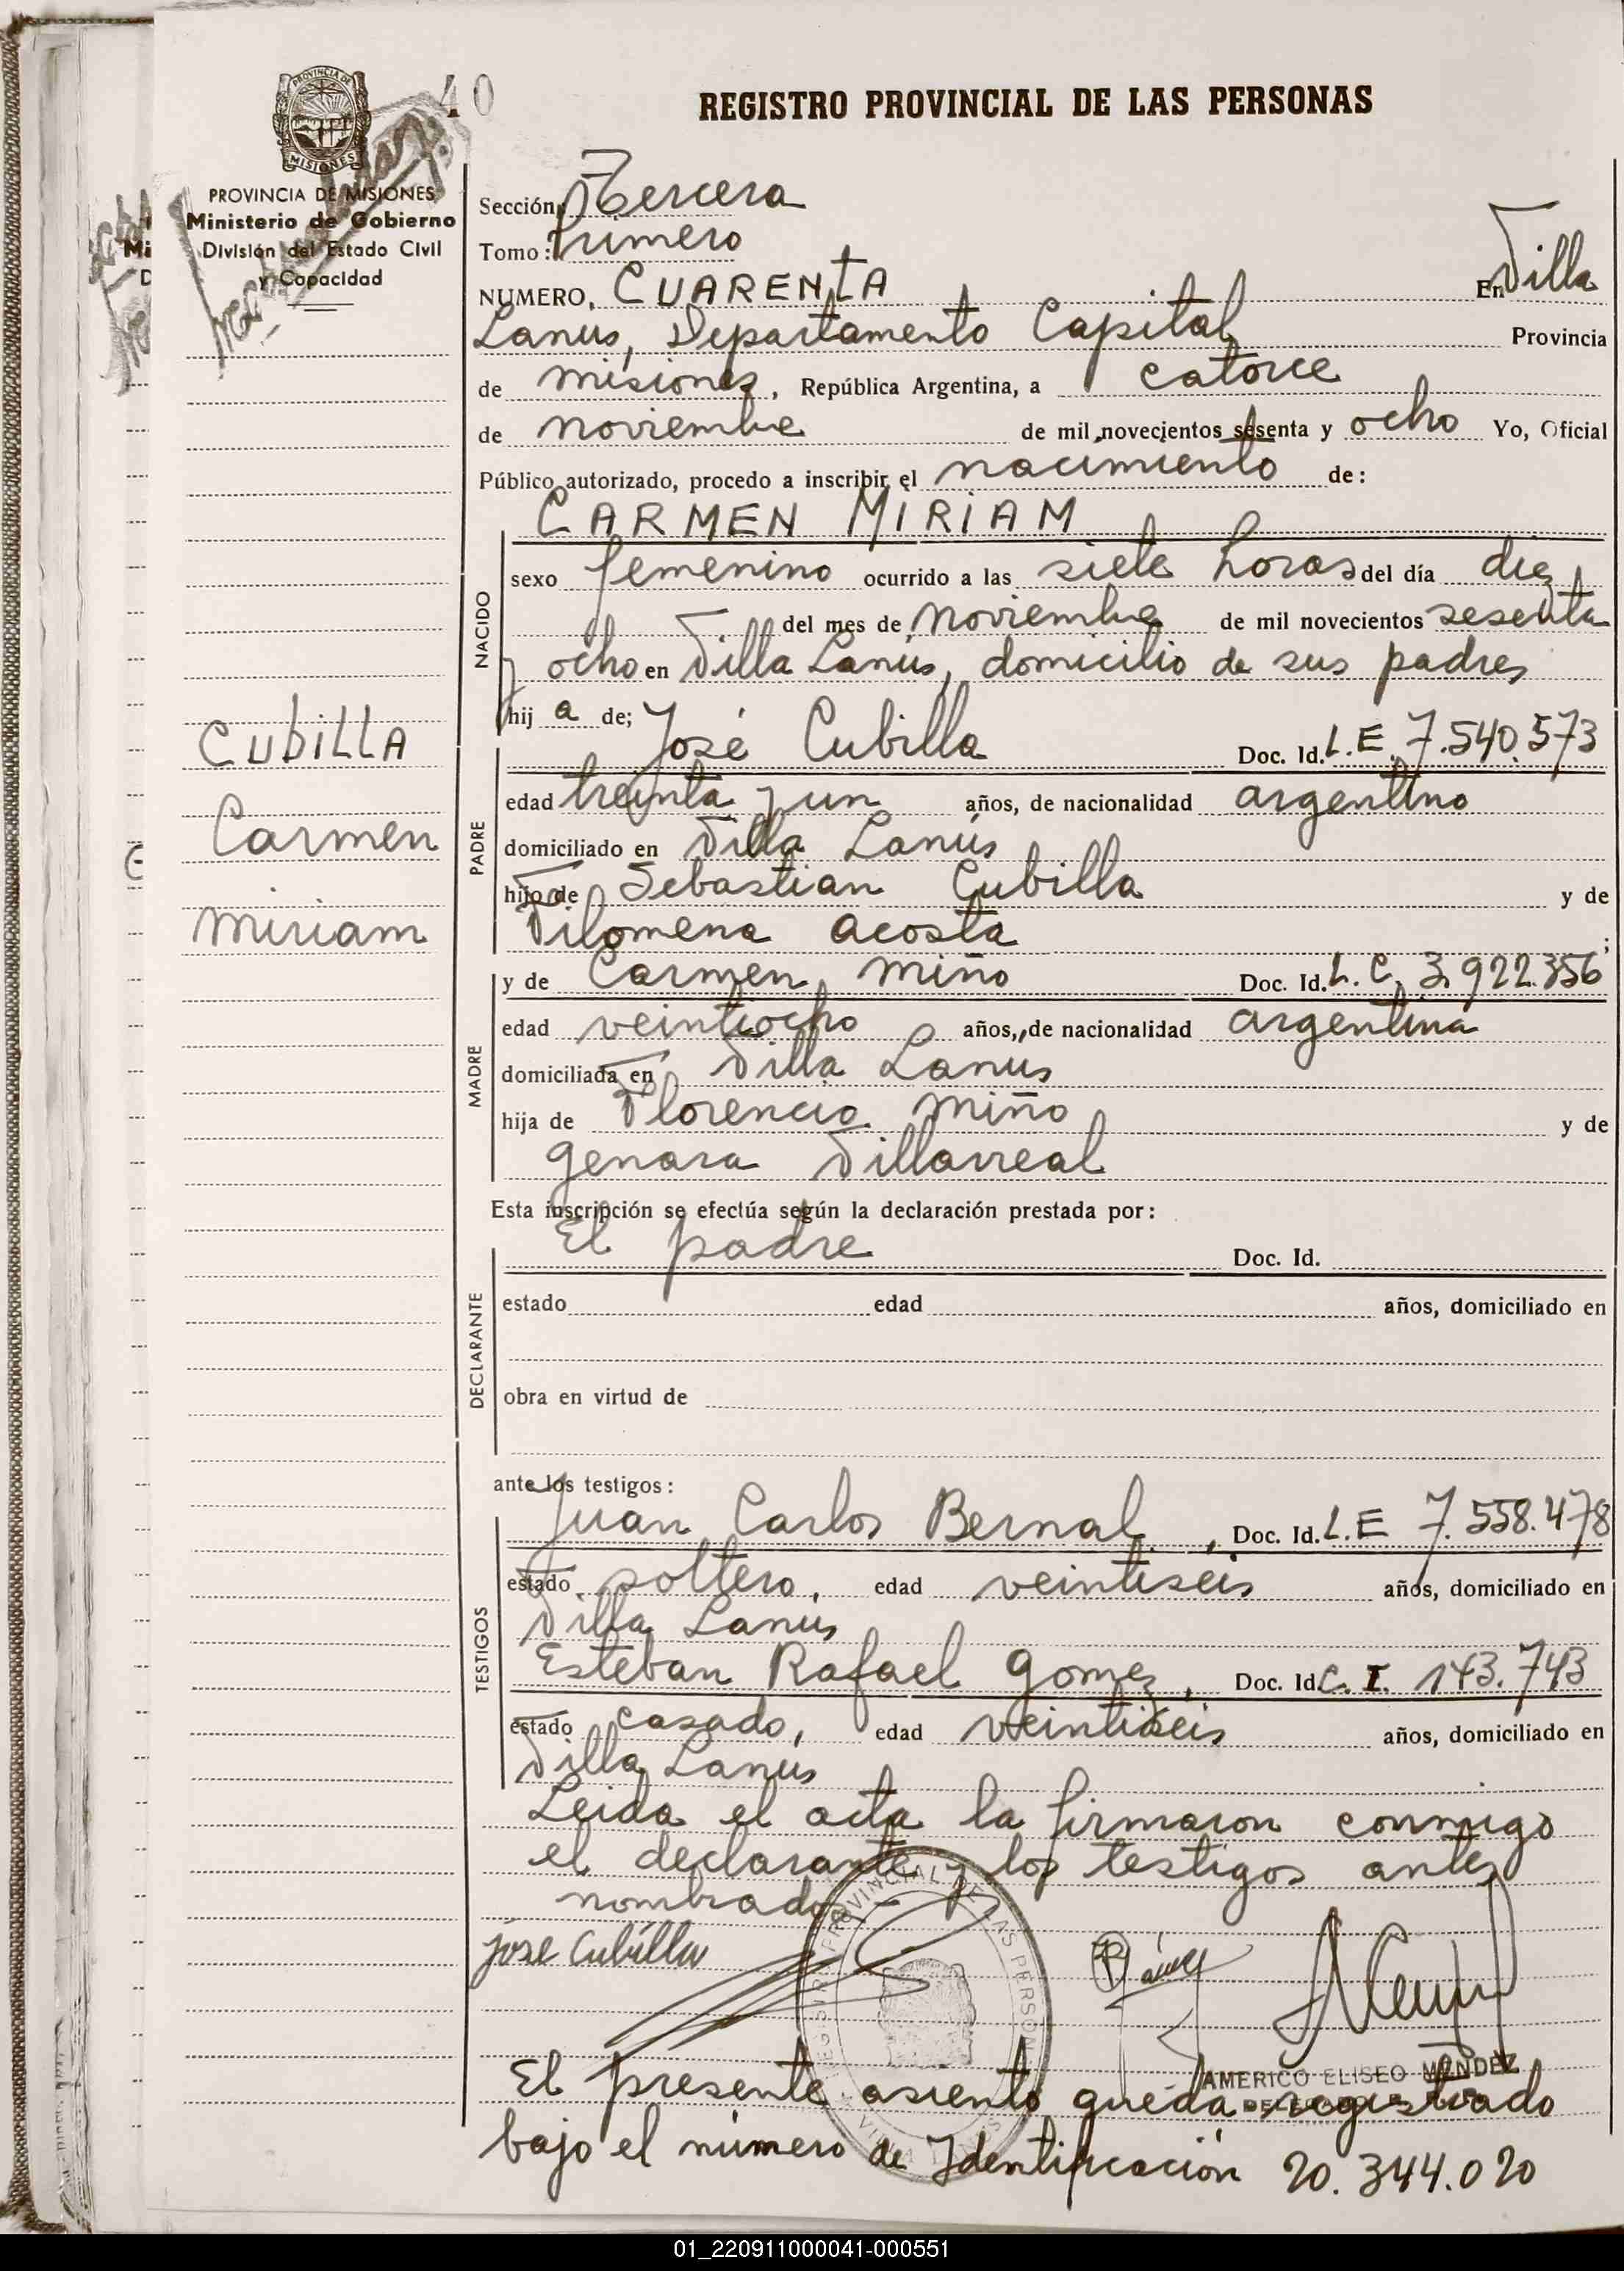 40
REGISTRO PROVINCIAL DE LAS PERSONAS
PROVINCIA DE MISIONES
Ministerio de Gobierno
División del Estado Civil
y Capacidad
Sección, Tercera
Tomo: Primero
NUMERO, CUARENTA En Villa
Lanus, Departamento Capital Provincia
de misiones, República Argentina, a catorce
de noviembre de mil novecientos sesenta y ocho Yo, Oficial
Público autorizado, procedo a inscribir el nacimiento de:
CARMEN MIRIAM
NACIDO
sexo femenino ocurrido a las siete horas del día diez
del mes de noviembre de mil novecientos sesenta
y ocho en Villa Lanús, domicilio de sus padres
hij a de;
CUBILLA
Carmen
Miriam
PADRE
José Cubilla Doc. Id. L.E. 7.540.573
edad treinta y un años, de nacionalidad argentino
domiciliado en Villa Lanús
hijo de Sebastian Cubilla y de
Filomena Acosta ;
MADRE
y de Carmen Miño Doc. Id. L.C. 3.922.356
edad veintiocho años, de nacionalidad argentina
domiciliada en Villa Lanus
hija de Florencio Miño y de
Genara Villarreal
Esta inscripción se efectúa según la declaración prestada por:
DECLARANTE
El padre Doc. Id.
estado edad años, domiciliado en
obra en virtud de
ante los testigos:
TESTIGOS
Juan Carlos Bernal, Doc. Id. L.E 7.558.478
estado soltero, edad veintiseis años, domiciliado en
Villa Lanús
Esteban Rafael Gomez, Doc. Id. C.I. 143.743
estado casado, edad veintiseis años, domiciliado en
Villa Lanús
Leida el acta la firmaron conmigo
el declarante y los testigos antes
nombrados
Jose Cubilla
AMERICO ELISEO MENDEZ
El presente asiento queda registrado
bajo el número de Identificación 20.344.020
01_220911000041-000551